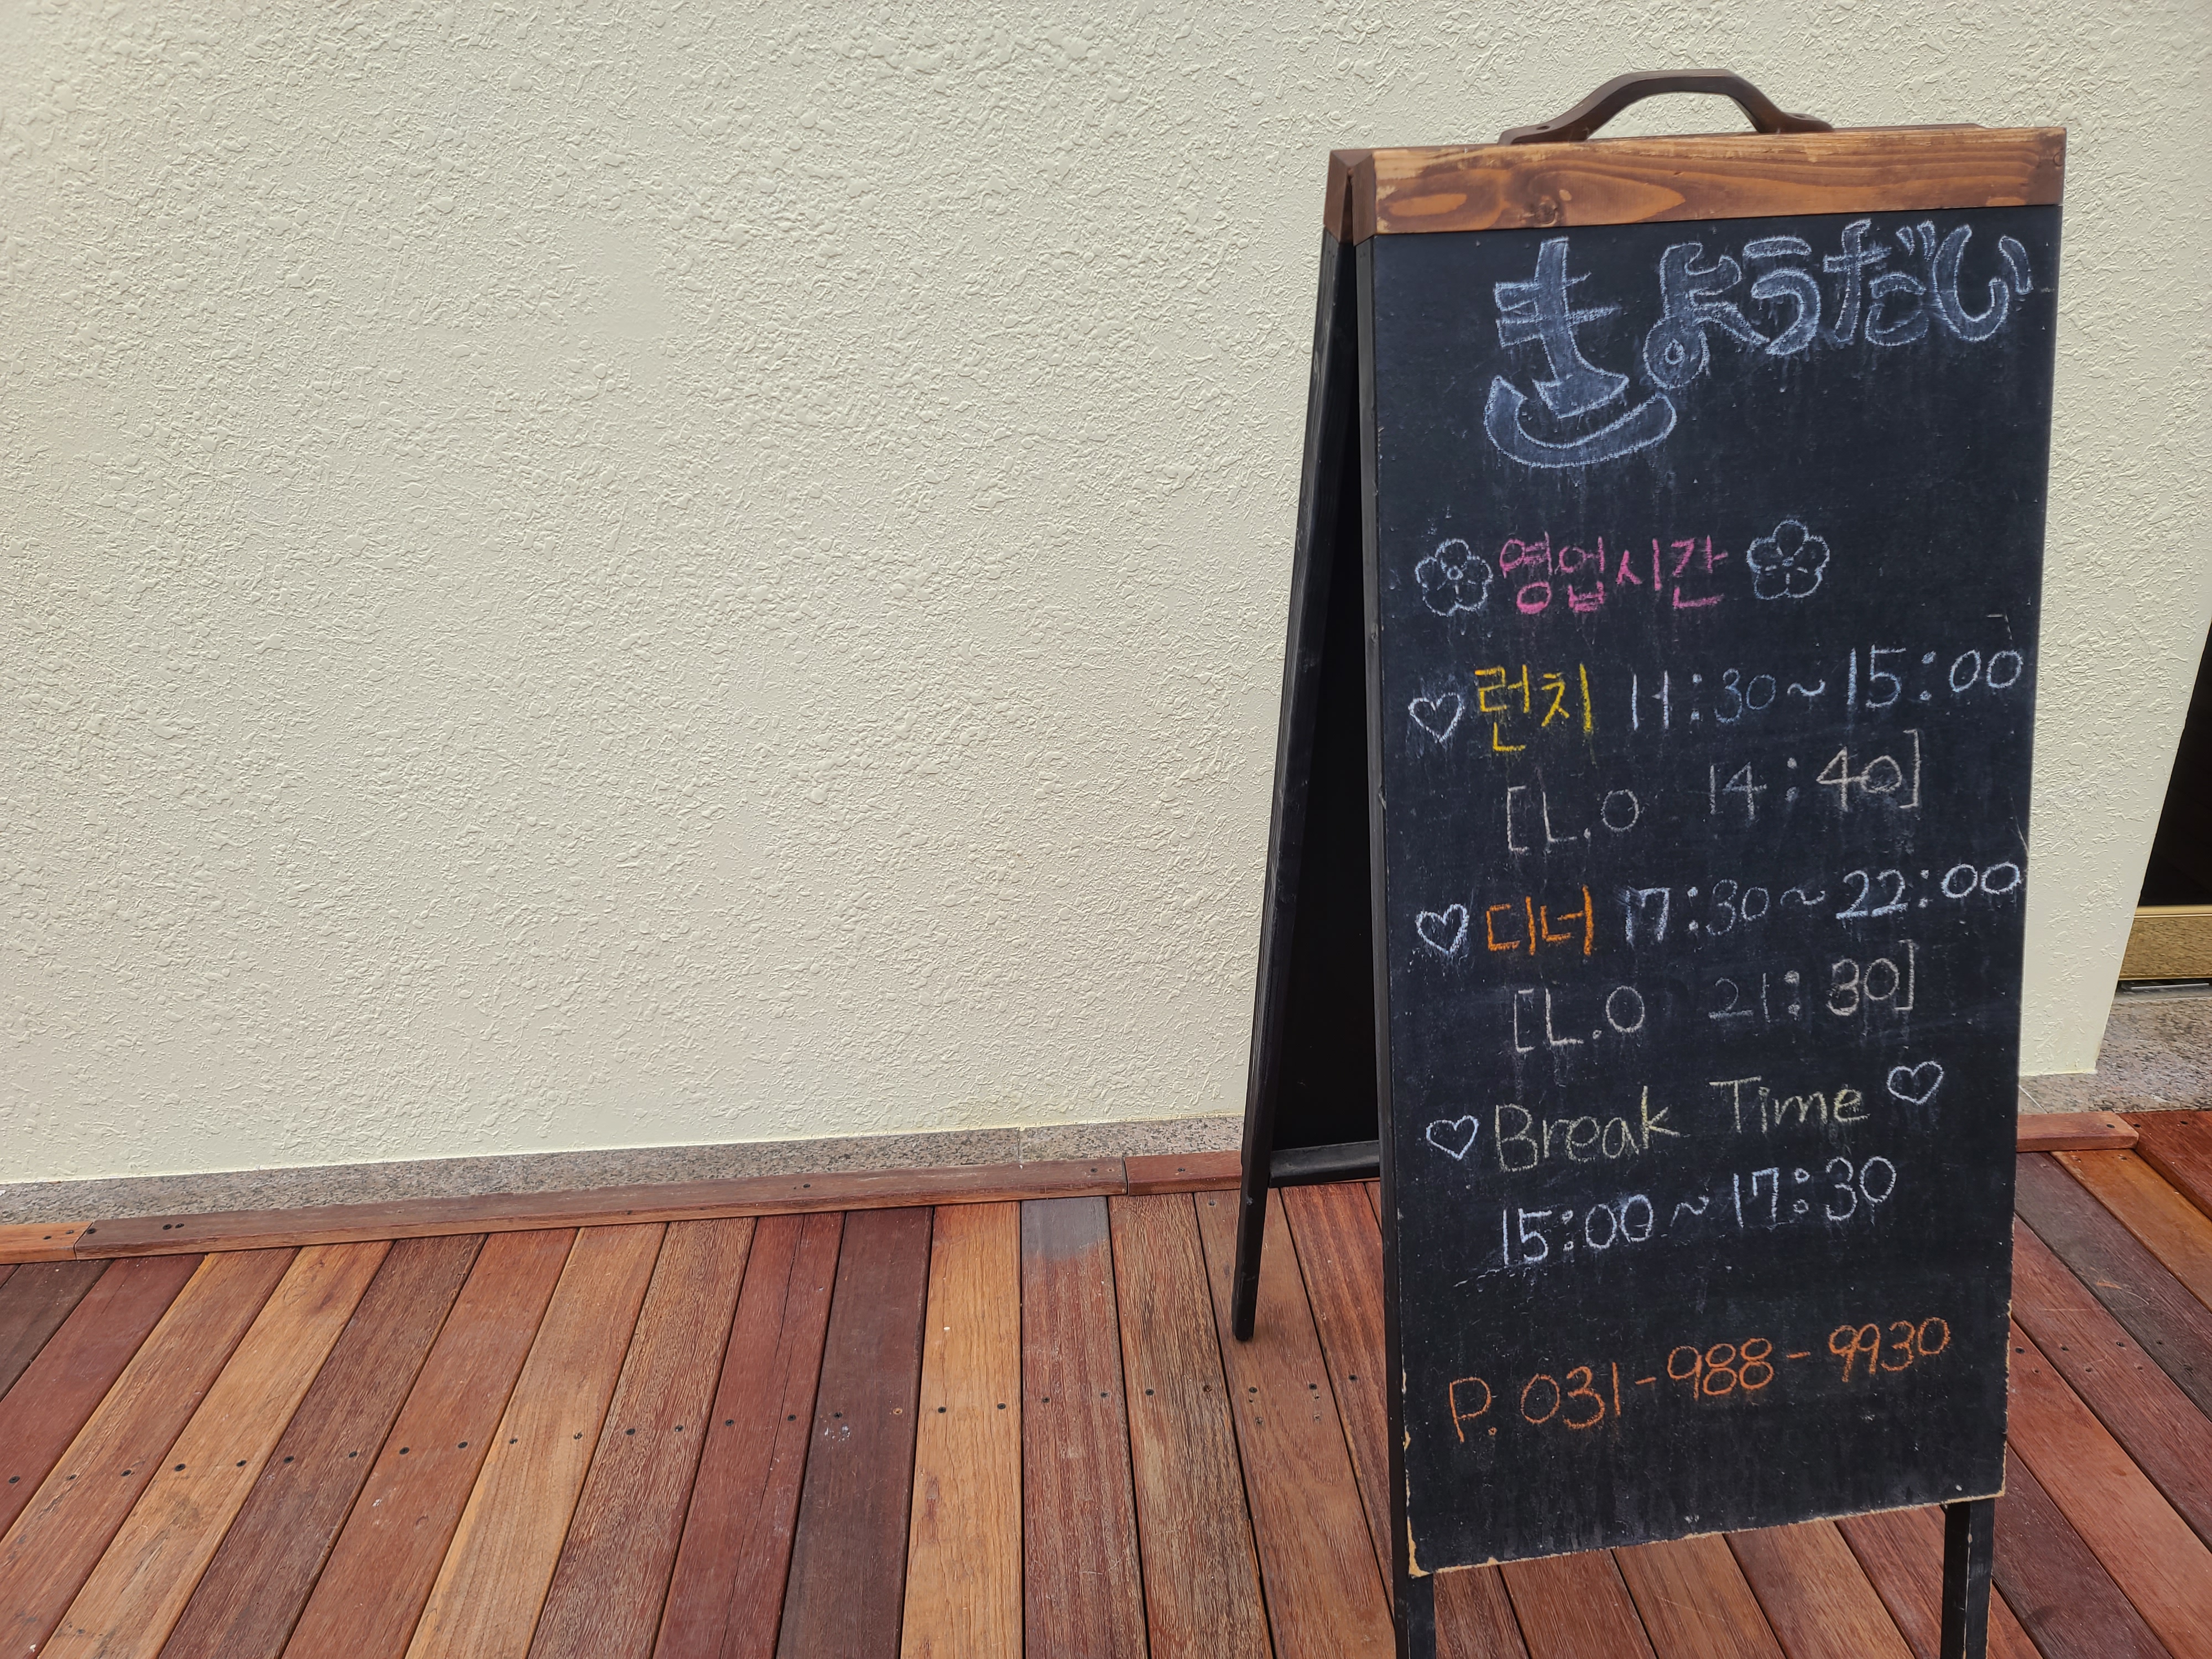 きょうだい
영업시간
런치 11:30~15:00
[L.O 14:40]
디너 17:30~22:00
[L.O 21:30]
Break Time
15:00~17:30
P. 031-988-9930